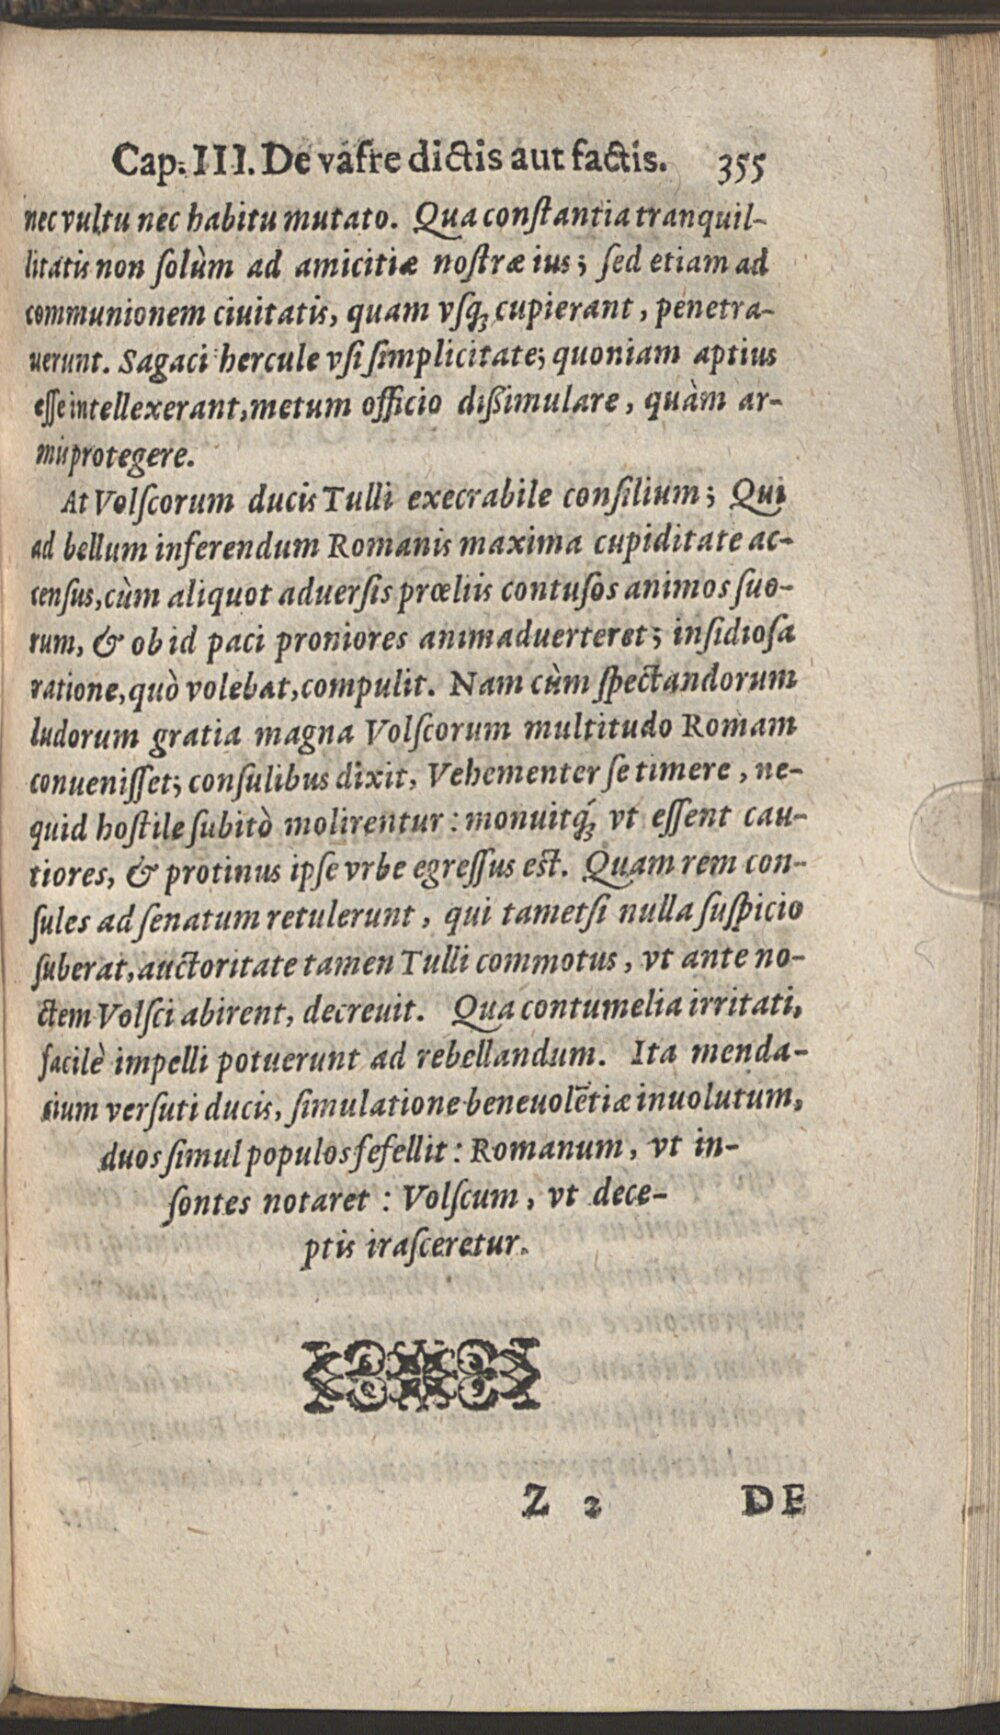 Cap. III. De vafre dictis aut factis. 355
nec vultu nec habitu mutato. Qua constantia tranquil-
litatis non solùm ad amicitiæ nostræ ius; sed etiam ad
communionem ciuitatis, quam vsq; cupierant, penetra-
uerunt. Sagaci hercule vsi simplicitate; quoniam aptius
esse intellexerant, metum officio dißimulare, quàm ar-
mis protegere.
At Volscorum ducis Tulli execrabile consilium; Qui
ad bellum inferendum Romanis maxima cupiditate ac-
census, cùm aliquot aduersis prœliis contusos animos suo-
rum, & ob id paci proniores animaduerteret; insidiosa
ratione, quò volebat, compulit. Nam cùm spectandorum
ludorum gratia magna Volscorum multitudo Romam
conuenisset; consulibus dixit, Vehementer se timere, ne-
quid hostile subitò molirentur: monuitq́; vt essent cau-
tiores, & protinus ipse vrbe egressus est. Quam rem con-
sules ad senatum retulerunt, qui tametsi nulla suspicio
suberat, auctoritate tamen Tulli commotus, vt ante no-
ctem Volsci abirent, decreuit. Qua contumelia irritati,
facilè impelli potuerunt ad rebellandum. Ita menda-
cium versuti ducis, simulatione beneuolētiæ inuolutum,
duos simul populos fefellit: Romanum, vt in-
sontes notaret: Volscum, vt dece-
ptis irasceretur.
Z 2 DE